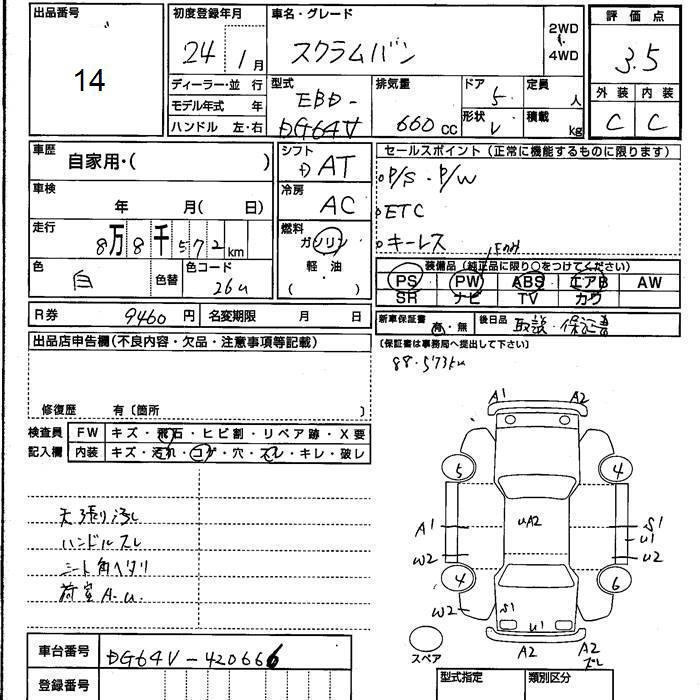 出品番号
14
初度登録年月
24 1月
ディーラー・並行
モデル年式 年
ハンドル 左・右
車名・グレード
スクラムバン
2WD
4WD
型式
EBD-
DG64V
排気量
660cc
ドア
5
形状
V
定員
人
積載
kg
評価点
3.5
外装 内装
C C
車歴
自家用・( )
車検
年 月( 日)
走行
8万8千572km
色
白
色替
色コード
26U
シフト
AT
冷房
AC
燃料
ガソリン
軽油
( ・ )
セールスポイント(正常に機能するものに限ります)
P/S・P/W
ETC
キーレス
装備品(純正品に限り○をつけてください)
PS PW ABS エアB AW
SR ナビ TV カワ
R券 9460円 名変期限 月 日
新車保証書 有・無 後日品 取説・保証書
(保証書は事務局へ提出して下さい)
88.573km
出品店申告欄(不良内容・欠品・注意事項等記載)
修復歴 有〔箇所 〕
検査員 FW キズ・飛石・ヒビ割・リペア跡・X要
記入欄 内装 キズ・汚れ・コゲ・穴・スレ・キレ・破レ
天張り汚れ
ハンドルスレ
シート角ヘタリ
荷室A.U.
A1 A2
5 4
A1 UA2 S1
U1
W2 U2
4 6
W2 S1
U1
A2 A2
ズレ
スペア
車台番号 DG64V-420666
登録番号
型式指定 類別区分